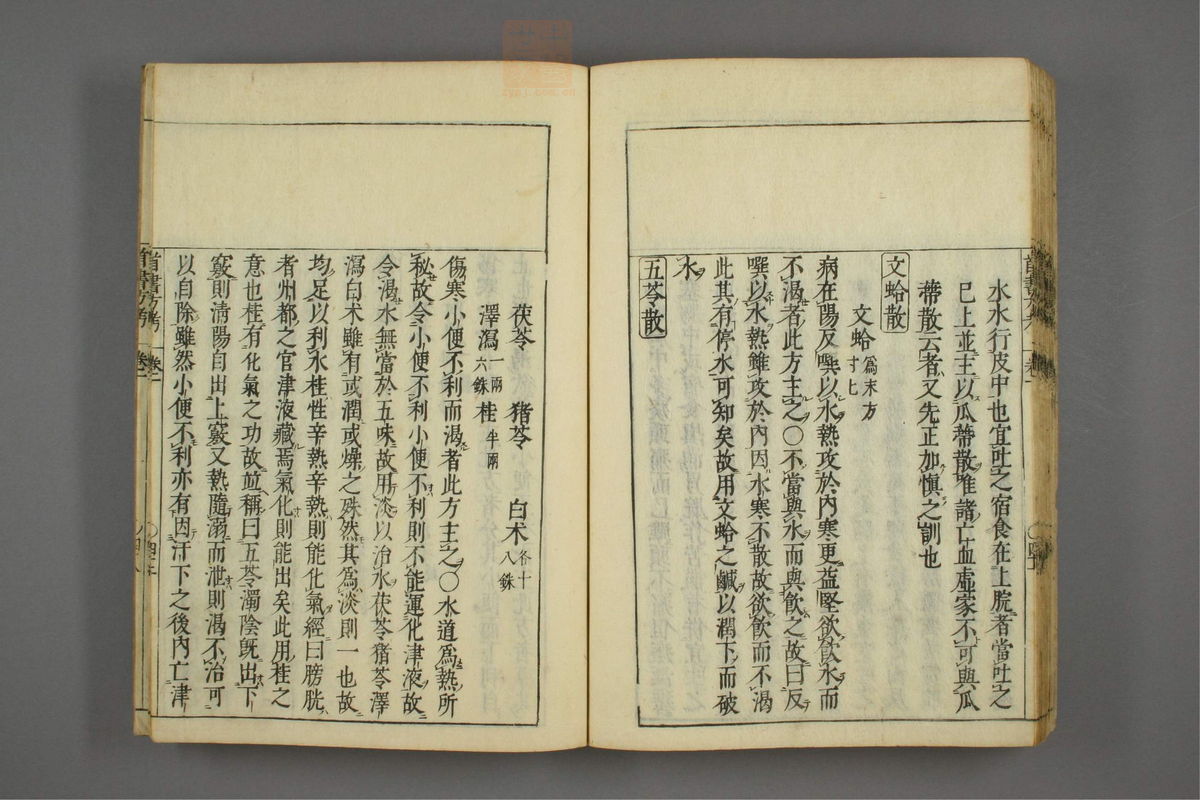 水水行皮中也宜吐之宿食在上脘者當吐之
已上並主以瓜蔕散惟諸亡血虛家不可與瓜
蔕散云者又先正加愼之訓也
文蛤散
文蛤爲末方寸匕
病在陽反噀以水熱攻於內寒更益堅欲飮水而
不渴者此方主之○不當與水而與飮之故曰反
噀以水熱雖攻於內因水寒不散故欲飮而不渴
此其有停水可知矣故用文蛤之鹹以潤下而破
水
五苓散
茯苓 猪苓 白朮各十八銖
澤瀉一兩六銖 桂半兩
傷寒小便不利而渴者此方主之○水道爲熱所
秘故令小便不利小便不利則不能運化津液故
令渴水無當於五味故用淡以治水茯苓猪苓澤
瀉白朮雖有或潤或燥之殊然其爲淡則一也故
均足以利水桂性辛熱辛熱則能化氣經曰膀胱
者州都之官津液藏焉氣化則能出矣此用桂之
意也桂有化氣之功故並稱曰五苓濁陰旣出下
竅則淸陽自出上竅又熱隨溺而泄則渴不治可
以自除雖然小便不利亦有因汗下之後內亡津